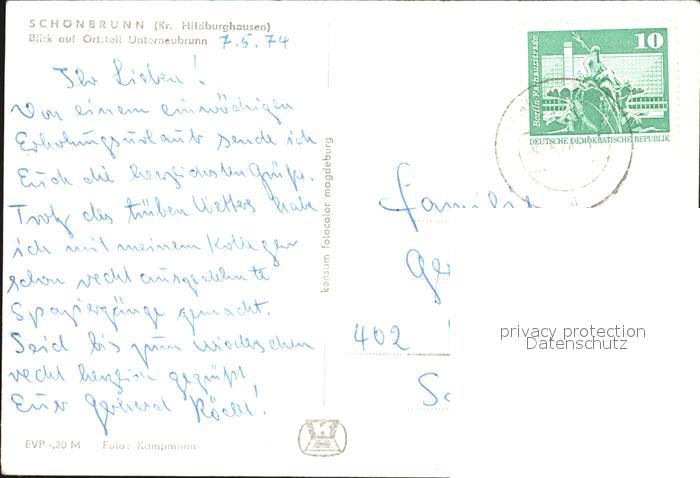 SCHÖNBRUNN (Kr. Hildburghausen)
Blick auf Ortsteil Unterneubrunn 7.5.74
Ihr Lieben!
Von einem einwöchigen
Erholungsurlaub sende ich
Euch die herzlichsten Grüße.
Trotz des trüben Wetters habe
ich mit meinem Kollegen
schon recht ausgedehnte
Spaziergänge gemacht.
Seid bis zum Wiedersehen
recht herzlich gegrüßt
Euer Gerhard
EVP -,20 M Foto: Kampmann
konsum fotocolor magdeburg
Berlin, Rathausstraße
10
DEUTSCHE DEMOKRATISCHE REPUBLIK
Familie
Ge
402
Sc
privacy protection
Datenschutz